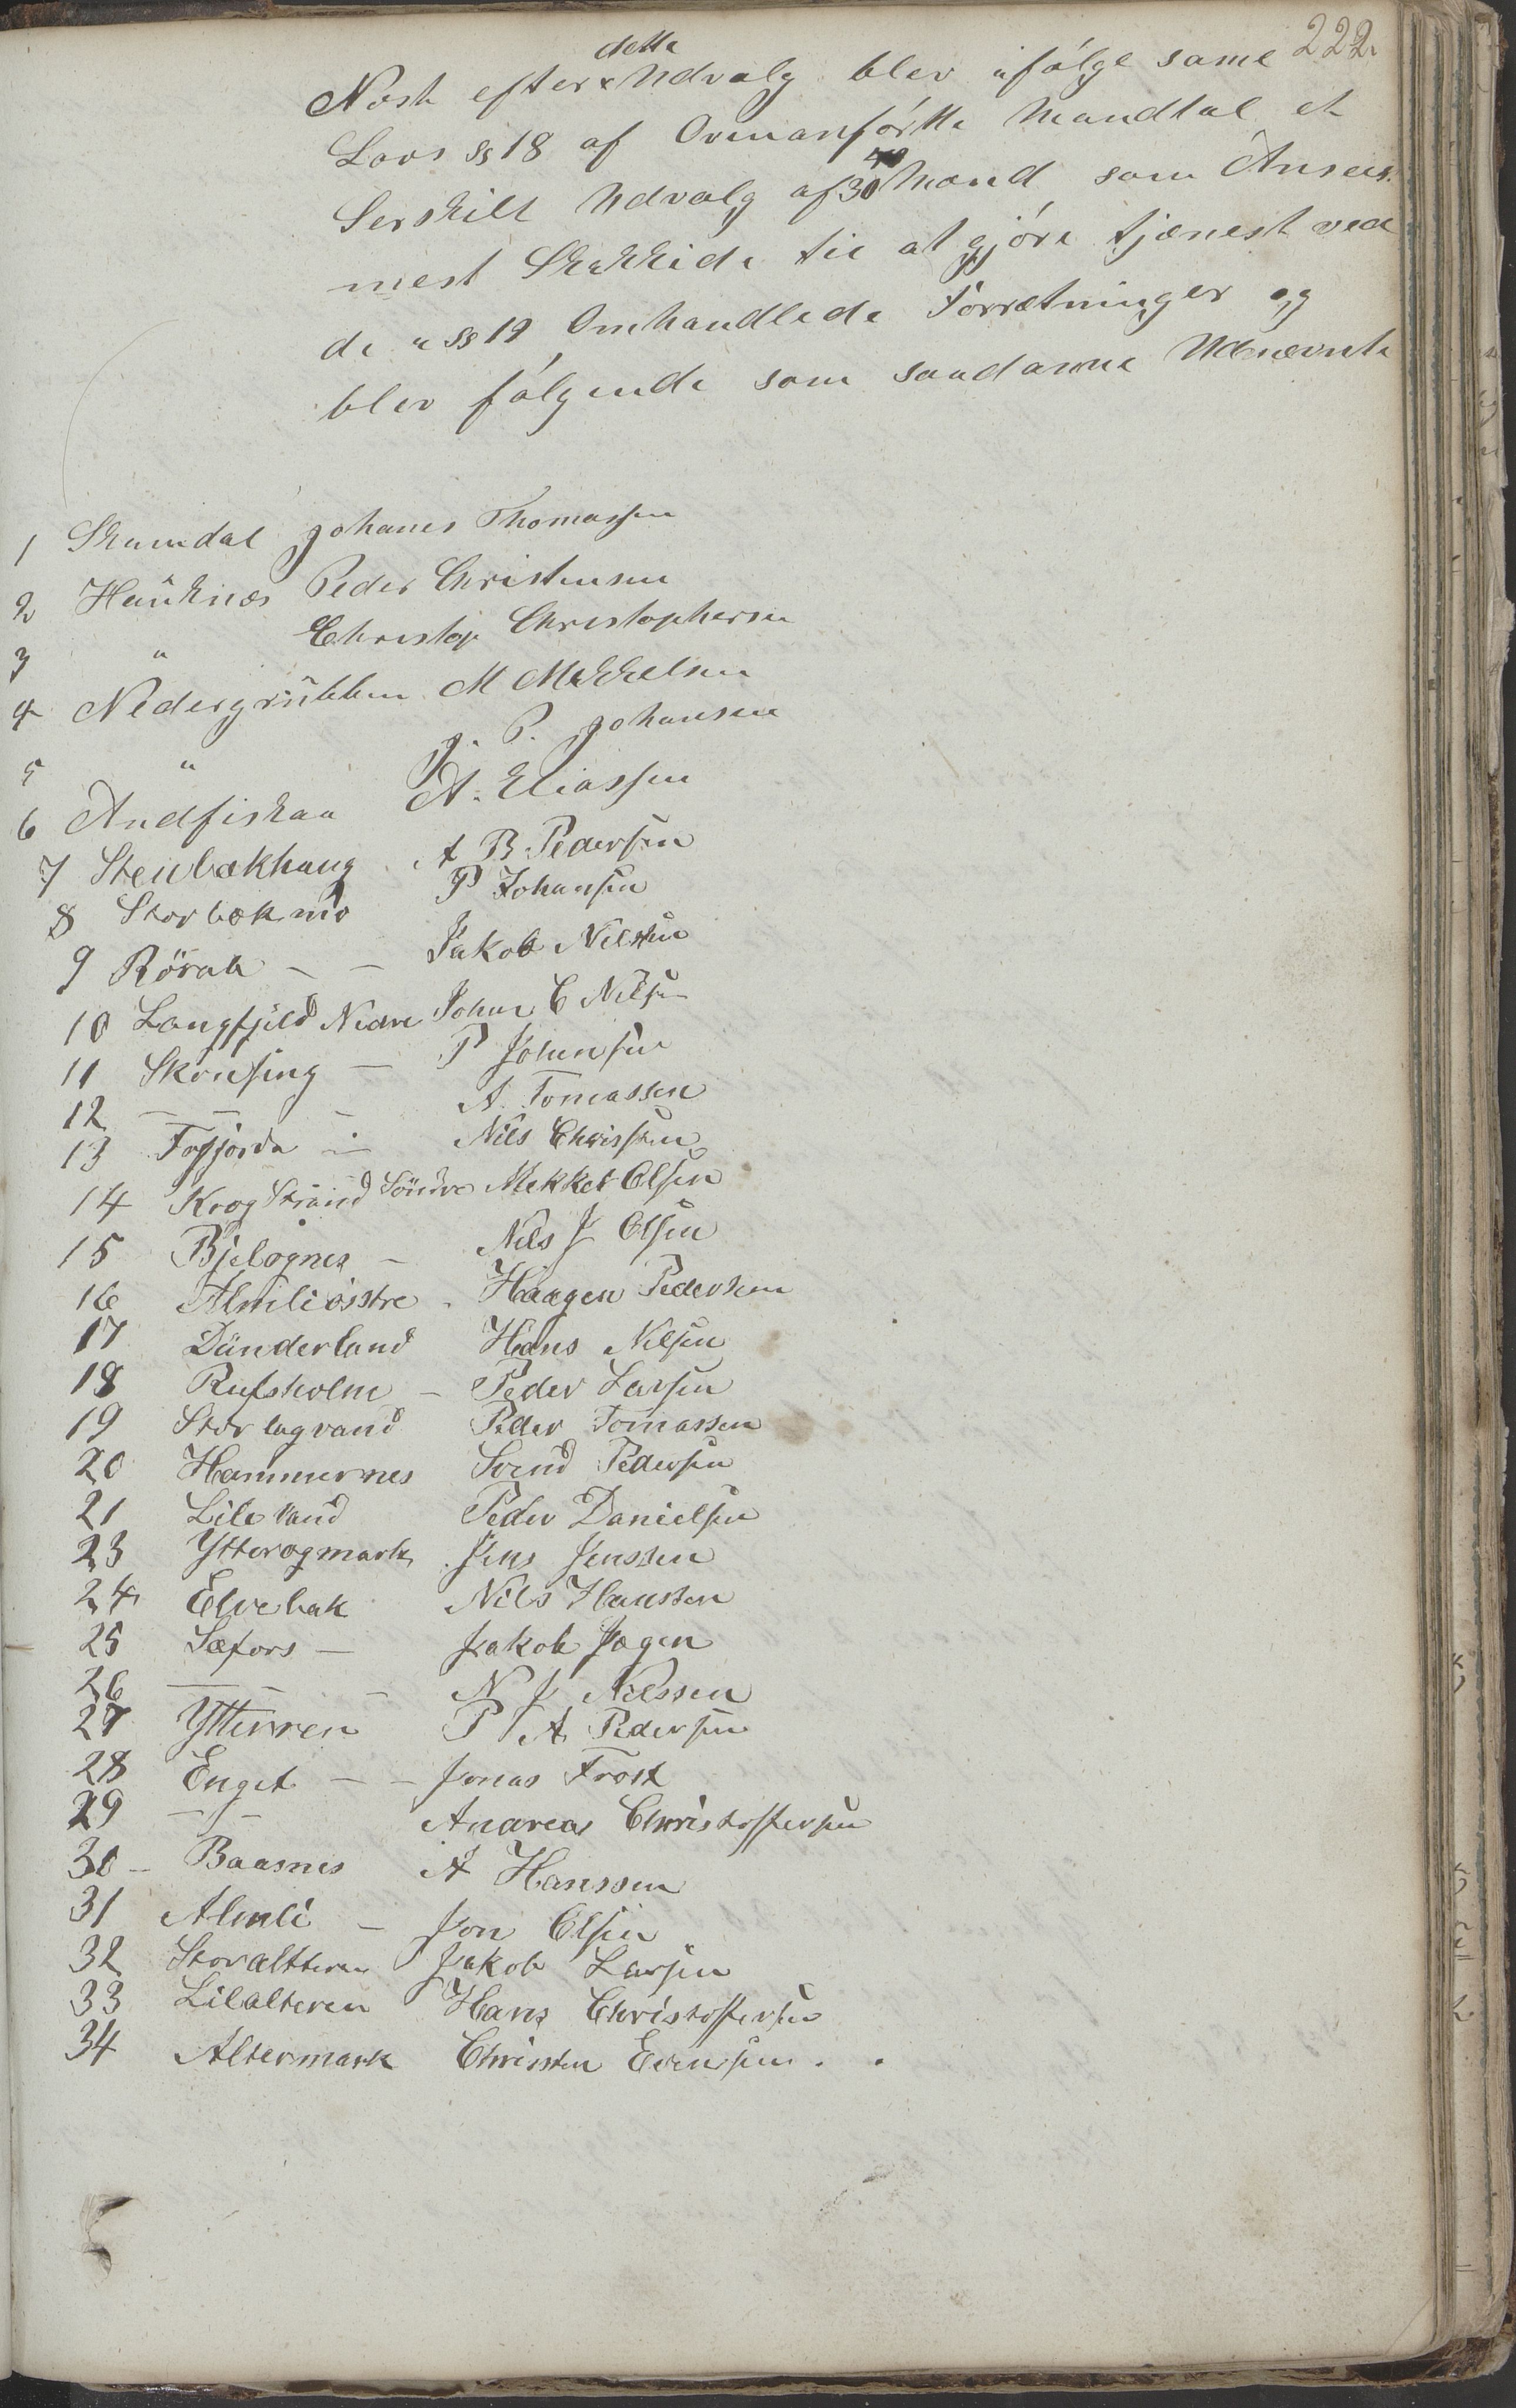 222.
Næst efter detta Udvalg blev ifølge same
Lovs §§ 18 af Ovenanførtte Mandtal et
Serskilt Udvalg af 30 40 Mænd som Ansees
mest Skikkede til at gjöre tjænest ved
de i §§ 19 Omhandlede Forrætninger og
blev følgende som saadanne Udnævnte
1 Skamdal Johanes Thomassen
2 Hauknæs Peder Christensen
3 " Christop Christophersen
4 Nedergrubben M Mekkelsen
5 " J. P. Johansen
6 Andfiskaa A. Eliassen
7 Stenbækhaug A B Pedersen
8 Storbækmo P Johansen
9 Rörali - - Jakob Nilsen
10 Langfjeld Nedre Johan C Nilsen
11 Skonseng - P Johansen
12 - - - A. Tomassen
13 Fagfjorda - Nils Chrissen
14 KrogStrand Söndre Mekkel Olsen
15 Bjelognes - Nils J Olsen
16 Almli östre - Haagen Pedersen
17 Dunderland Hans Nilsen
18 Rufsholm - Peder Larsen
19 Storlagvand Peder Tomassen
20 Hammernes Svend Pedersen
21 Lilevand Peder Danielsen
23 Ytterøgmark Jens Jenssen
24 Elvebak Nils Hanssen
25 Sæfors - Jakob Jægen
26 - - - N J Nilssen
27 Ytterren P A Pedersen
28 Enget - - Jonas Frost
29 - - Andreas Christoffersen
30 - Baasnes A Hanssen
31 Almli - Jon Olsen
32 Storaltteren Jakob Larsen
33 Lilalteren Hans Christoffersen
34 Altermark Christen Evensen .